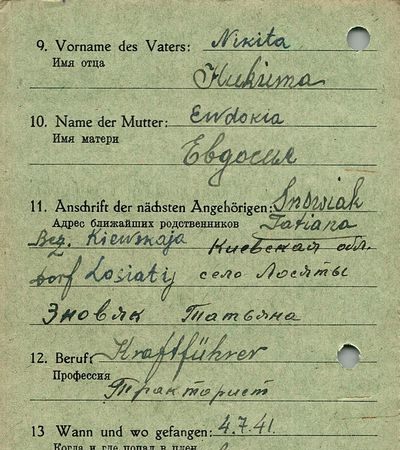 9. Vorname des Vaters: Nikita
Имя отца
Никита
10. Name der Mutter: Ewdokia
Имя матери
Евдосия
11. Anschrift der nächsten Angehörigen: Snowiak
Адрес ближайших родственников Tatiana
Bez. Kiewskaja Киевская обл.
Dorf Losiatij село Лосяты
Зновяк Татьяна
12. Beruf: Kraftführer
Профессия
Тракторист
13 Wann und wo gefangen: 4.7.41.
Когда и где попал в плен